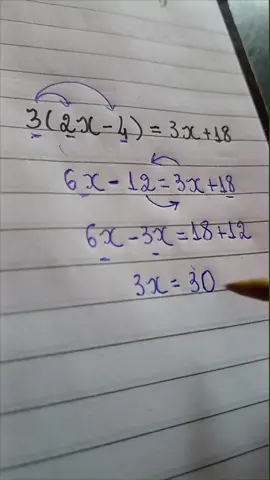 3(2x-4)=3x+18
6x-12=3x+18
6x-3x=18+12
3x=30